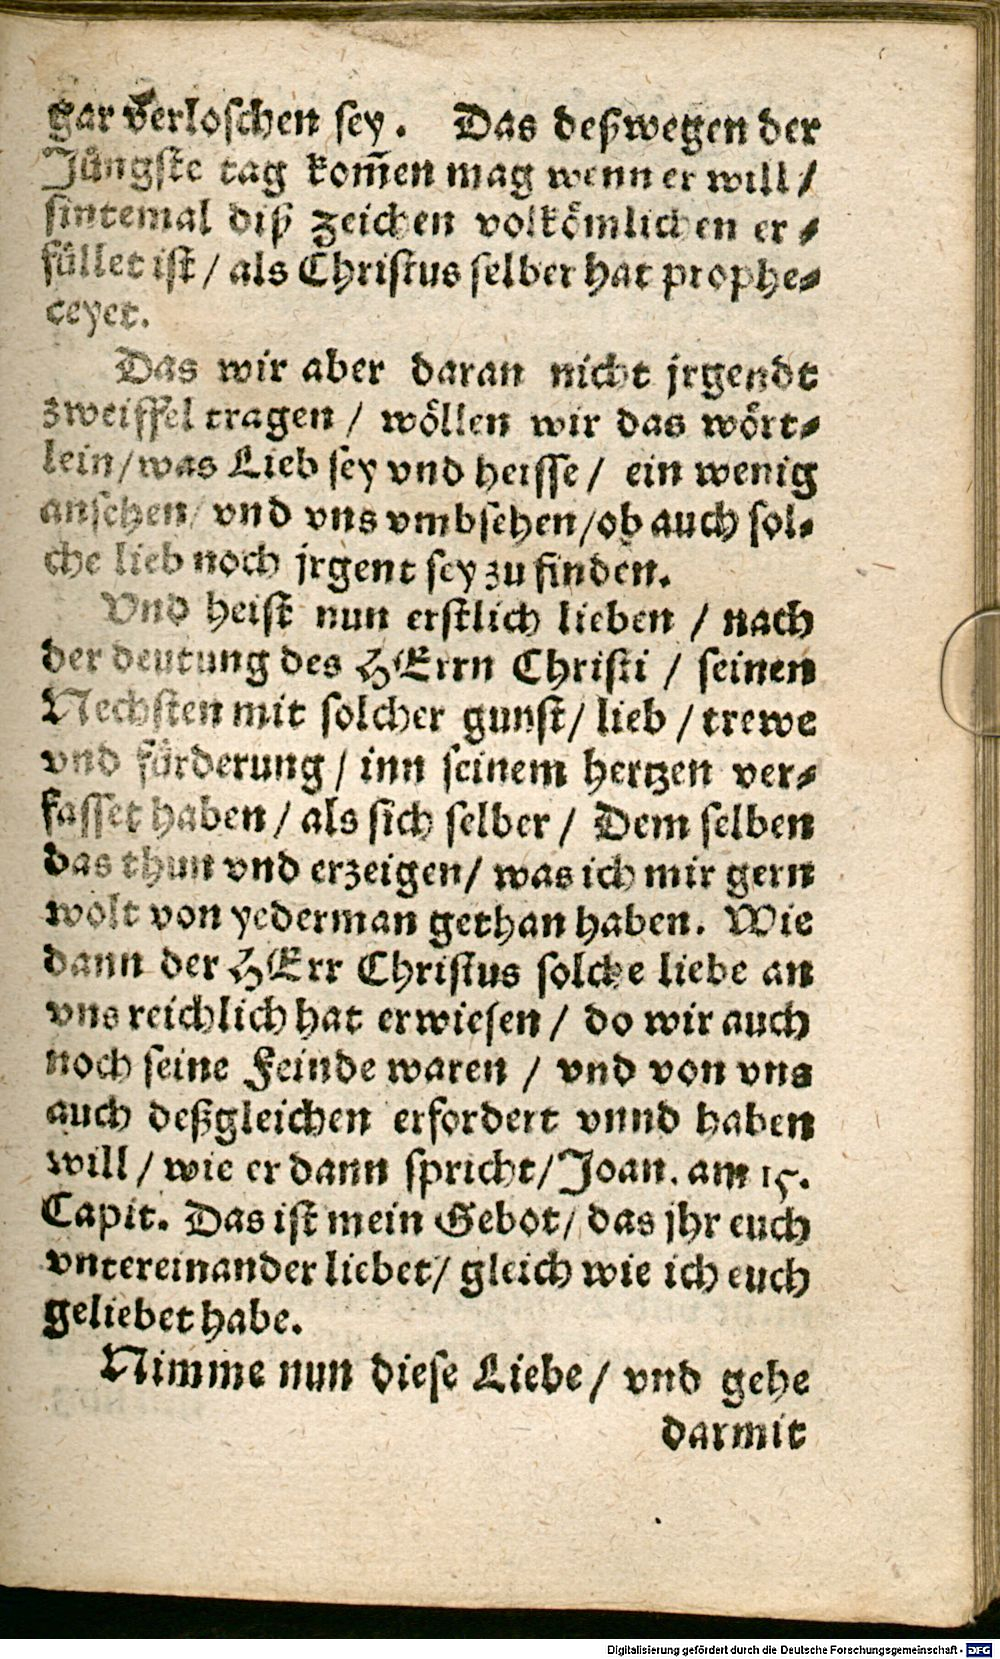 gar verloschen sey. Das deßwegen der
Jüngste tag kom̃en mag wenn er will /
sintemal diß zeichen volkömlichen er⸗
füllet ist / als Christus selber hat prophe⸗
ceyet.
Das wir aber daran nicht jrgendt
zweiffel tragen / wöllen wir das wört⸗
lein / was Lieb sey vnd heisse / ein wenig
ansehen / vnd vns vmbsehen / ob auch sol⸗
che lieb noch jrgent sey zu finden.
Vnd heist nun erstlich lieben / nach
der deutung des HErrn Christi / seinen
Nechsten mit solcher gunst / lieb / trewe
vnd fürderung / inn seinem hertzen ver⸗
fasset haben / als sich selber / Dem selben
das thun vnd erzeigen / was ich mir gern
wolt von yederman gethan haben. Wie
dann der HErr Christus solche liebe an
vns reichlich hat erwiesen / do wir auch
noch seine Feinde waren / vnd von vns
auch deßgleichen erfordert vnnd haben
will / wie er dann spricht / Joan. am 15.
Capit. Das ist mein Gebot / das jhr euch
vntereinander liebet / gleich wie ich euch
geliebet habe.
Nimme nun diese Liebe / vnd gehe
darmit
Digitalisierung gefördert durch die Deutsche Forschungsgemeinschaft - DFG